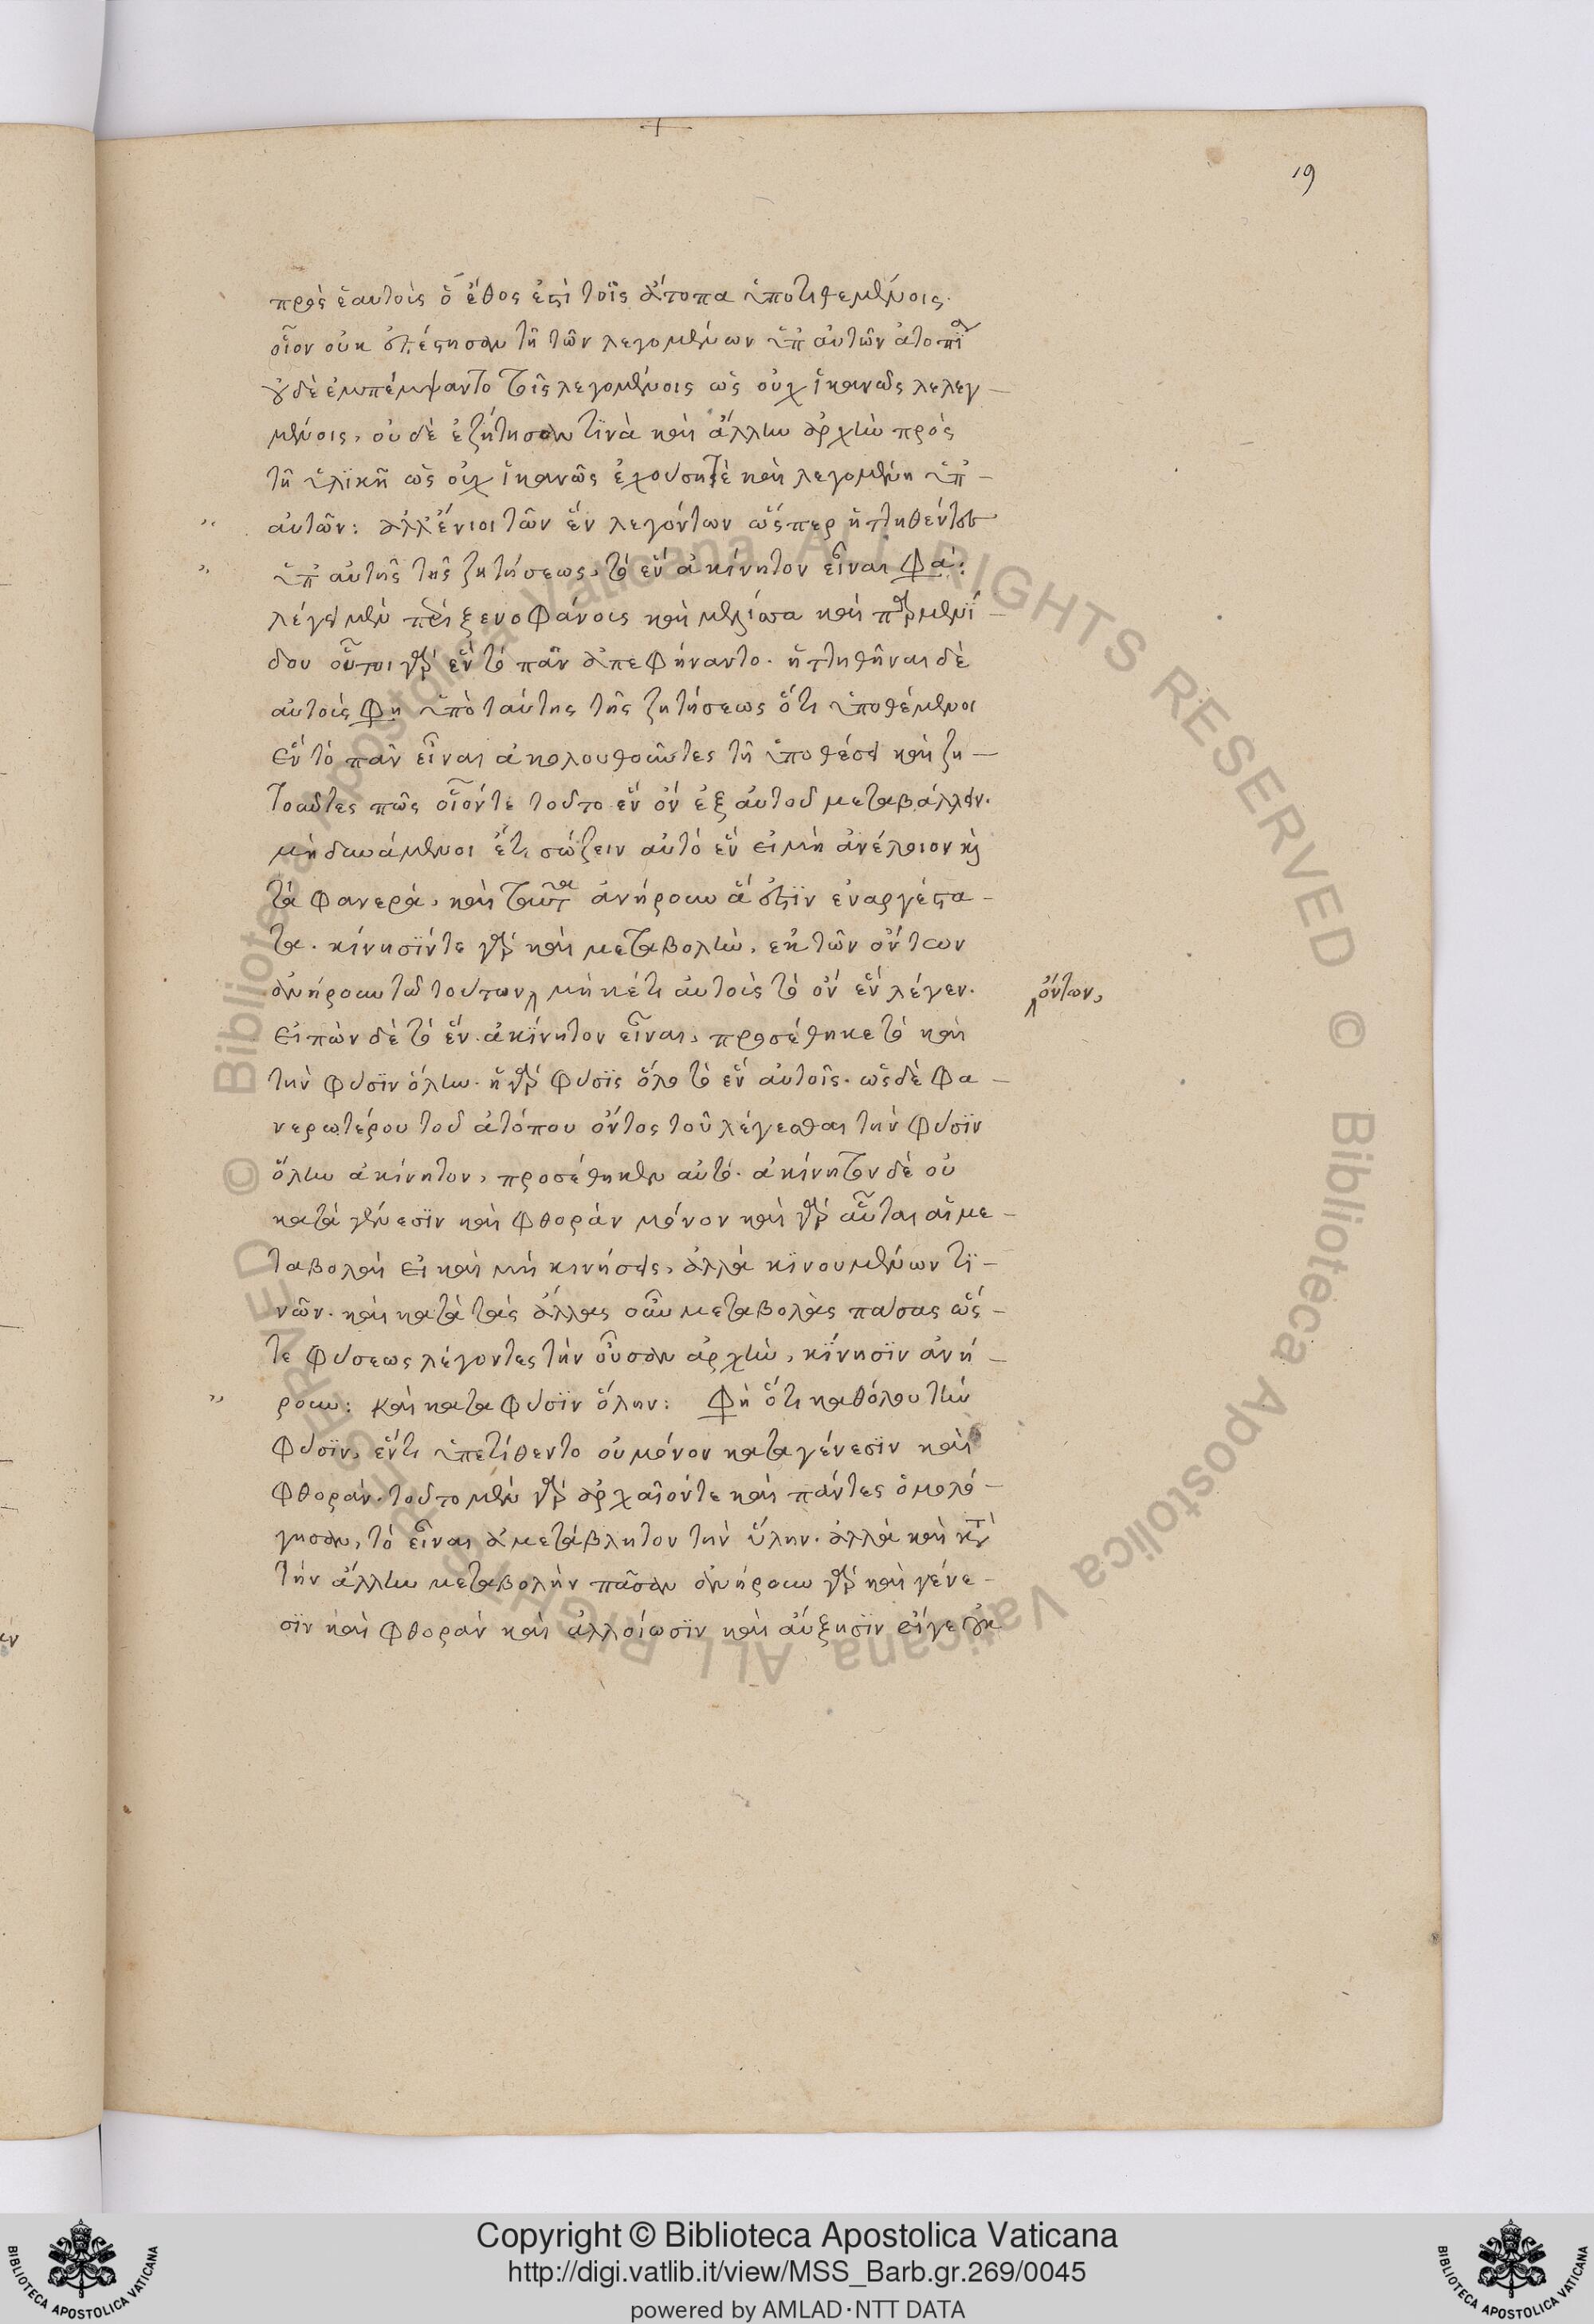 19
πρὸς ἑαυτοὺς ὃ ἔθος ἐπὶ τοῖς ἄτοπα ὑποτιθεμένοις.
οἷον οὐκ ἐπέστησαν τῇ τῶν λεγομένων ὑπ αὐτῶν ἀτοπίᾳ
οὐδὲ ἐμπέμψαντο τοῖς λεγομένοις ὡς οὐχ ἱκανῶς λελεγ-
μένοις, οὐδὲ ἐζήτησαν τινὰ καὶ ἄλλην ἀρχὴν πρὸς
τῇ ὑλικῇ ὡς οὐχ ἱκανῶς ἐχούσῃ τὲ καὶ λεγομένῃ ὑπ-
" αὐτῶν: ἀλλ ἔνιοι τῶν ἓν λεγόντων ὥσπερ ἡττηθέντες
" ὑπ αὐτῆς τῆς ζητήσεως, τὸ ἓν ἀκίνητον εἶναι φα:
λέγει μὲν περὶ ξενοφάνους καὶ μελίσσα καὶ παρμενί-
δου οὗτοι γὰρ ἓν τὸ πᾶν ἀπεφήναντο. ἡττηθῆναι δὲ
αὐτούς φη ὑπὸ ταύτης τῆς ζητήσεως ὅτι ὑποθέμενοι
ἓν τὸ πᾶν εἶναι ἀκολουθοῦντες τῇ ὑποθέσει καὶ ζη-
τοῦντες πῶς οἷόντε τοῦτο ἓν ὂν ἐξ αὐτοῦ μεταβάλλειν.
μὴ δυνάμενοι ἔτι σώζειν αὐτὸ ἓν εἰ μὴ ἀνέλοιον καὶ
τὰ φανερά, καὶ ταῦτα ἀνήρουν ἅ ἐστὶν ἐναργέστα-
τα. κίνησίντε γὰρ καὶ μεταβολὴν, ἐκ τῶν ὄντων
ἀνήρουν τῷ τούτων μηκέτι αὐτοὺς τὸ ὂν ἓν λέγειν.
ὄντων,
εἰπὼν δὲ τὸ ἓν. ἀκίνητον εἶναι, προσέθηκε τὸ καὶ
τὴν φύσιν ὅλην. ἡ γὰρ φύσις ὅλη τὸ ἓν αὐτοῖς. ὡς δὲ φα-
νερωτέρου τοῦ ἀτόπου ὄντος τοῦ λέγεσθαι τὴν φύσιν
ὅλην ἀκίνητον, προσέθηκεν αὐτό. ἀκίνητον δὲ οὐ
κατὰ γένεσιν καὶ φθορὰν μόνον καὶ γὰρ αὗται αἱ με-
ταβολαὶ εἰ καὶ μὴ κινήσεις, ἀλλὰ κινουμένων τι-
νῶν. καὶ κατὰ τὰς ἄλλας οὖν μεταβολὰς πάσας ὥσ-
τε φύσεως λέγοντες τὴν οὖσαν ἀρχὴν, κίνησιν ἀνή-
" ρουν: καὶ κατα φύσιν ὅλην: φὴ ὅτι καθόλου τὴν
φύσιν, ἕν τι ὑπετίθεντο οὐ μόνον κατα γένεσιν καὶ
φθοράν. τοῦτο μὲν γὰρ ἀρχαῖόντε καὶ πάντες ὁμολό-
γησαν, τὸ εἶναι ἀμετάβλητον τὴν ὕλην. ἀλλὰ καὶ κατὰ
τὴν ἄλλην μεταβολὴν πᾶσαν ἀνήρουν γὰρ καὶ γένε-
σιν καὶ φθορὰν καὶ ἀλλοίωσιν καὶ αὔξησιν εἴγε ἐκ
Copyright © Biblioteca Apostolica Vaticana
http://digi.vatlib.it/view/MSS_Barb.gr.269/0045
powered by AMLAD·NTT DATA
BIBLIOTECA APOSTOLICA VATICANA
BIBLIOTECA APOSTOLICA VATICANA
© Biblioteca Apostolica Vaticana ALL RIGHTS RESERVED © Biblioteca Apostolica Vaticana ALL RIGHTS RESERVED